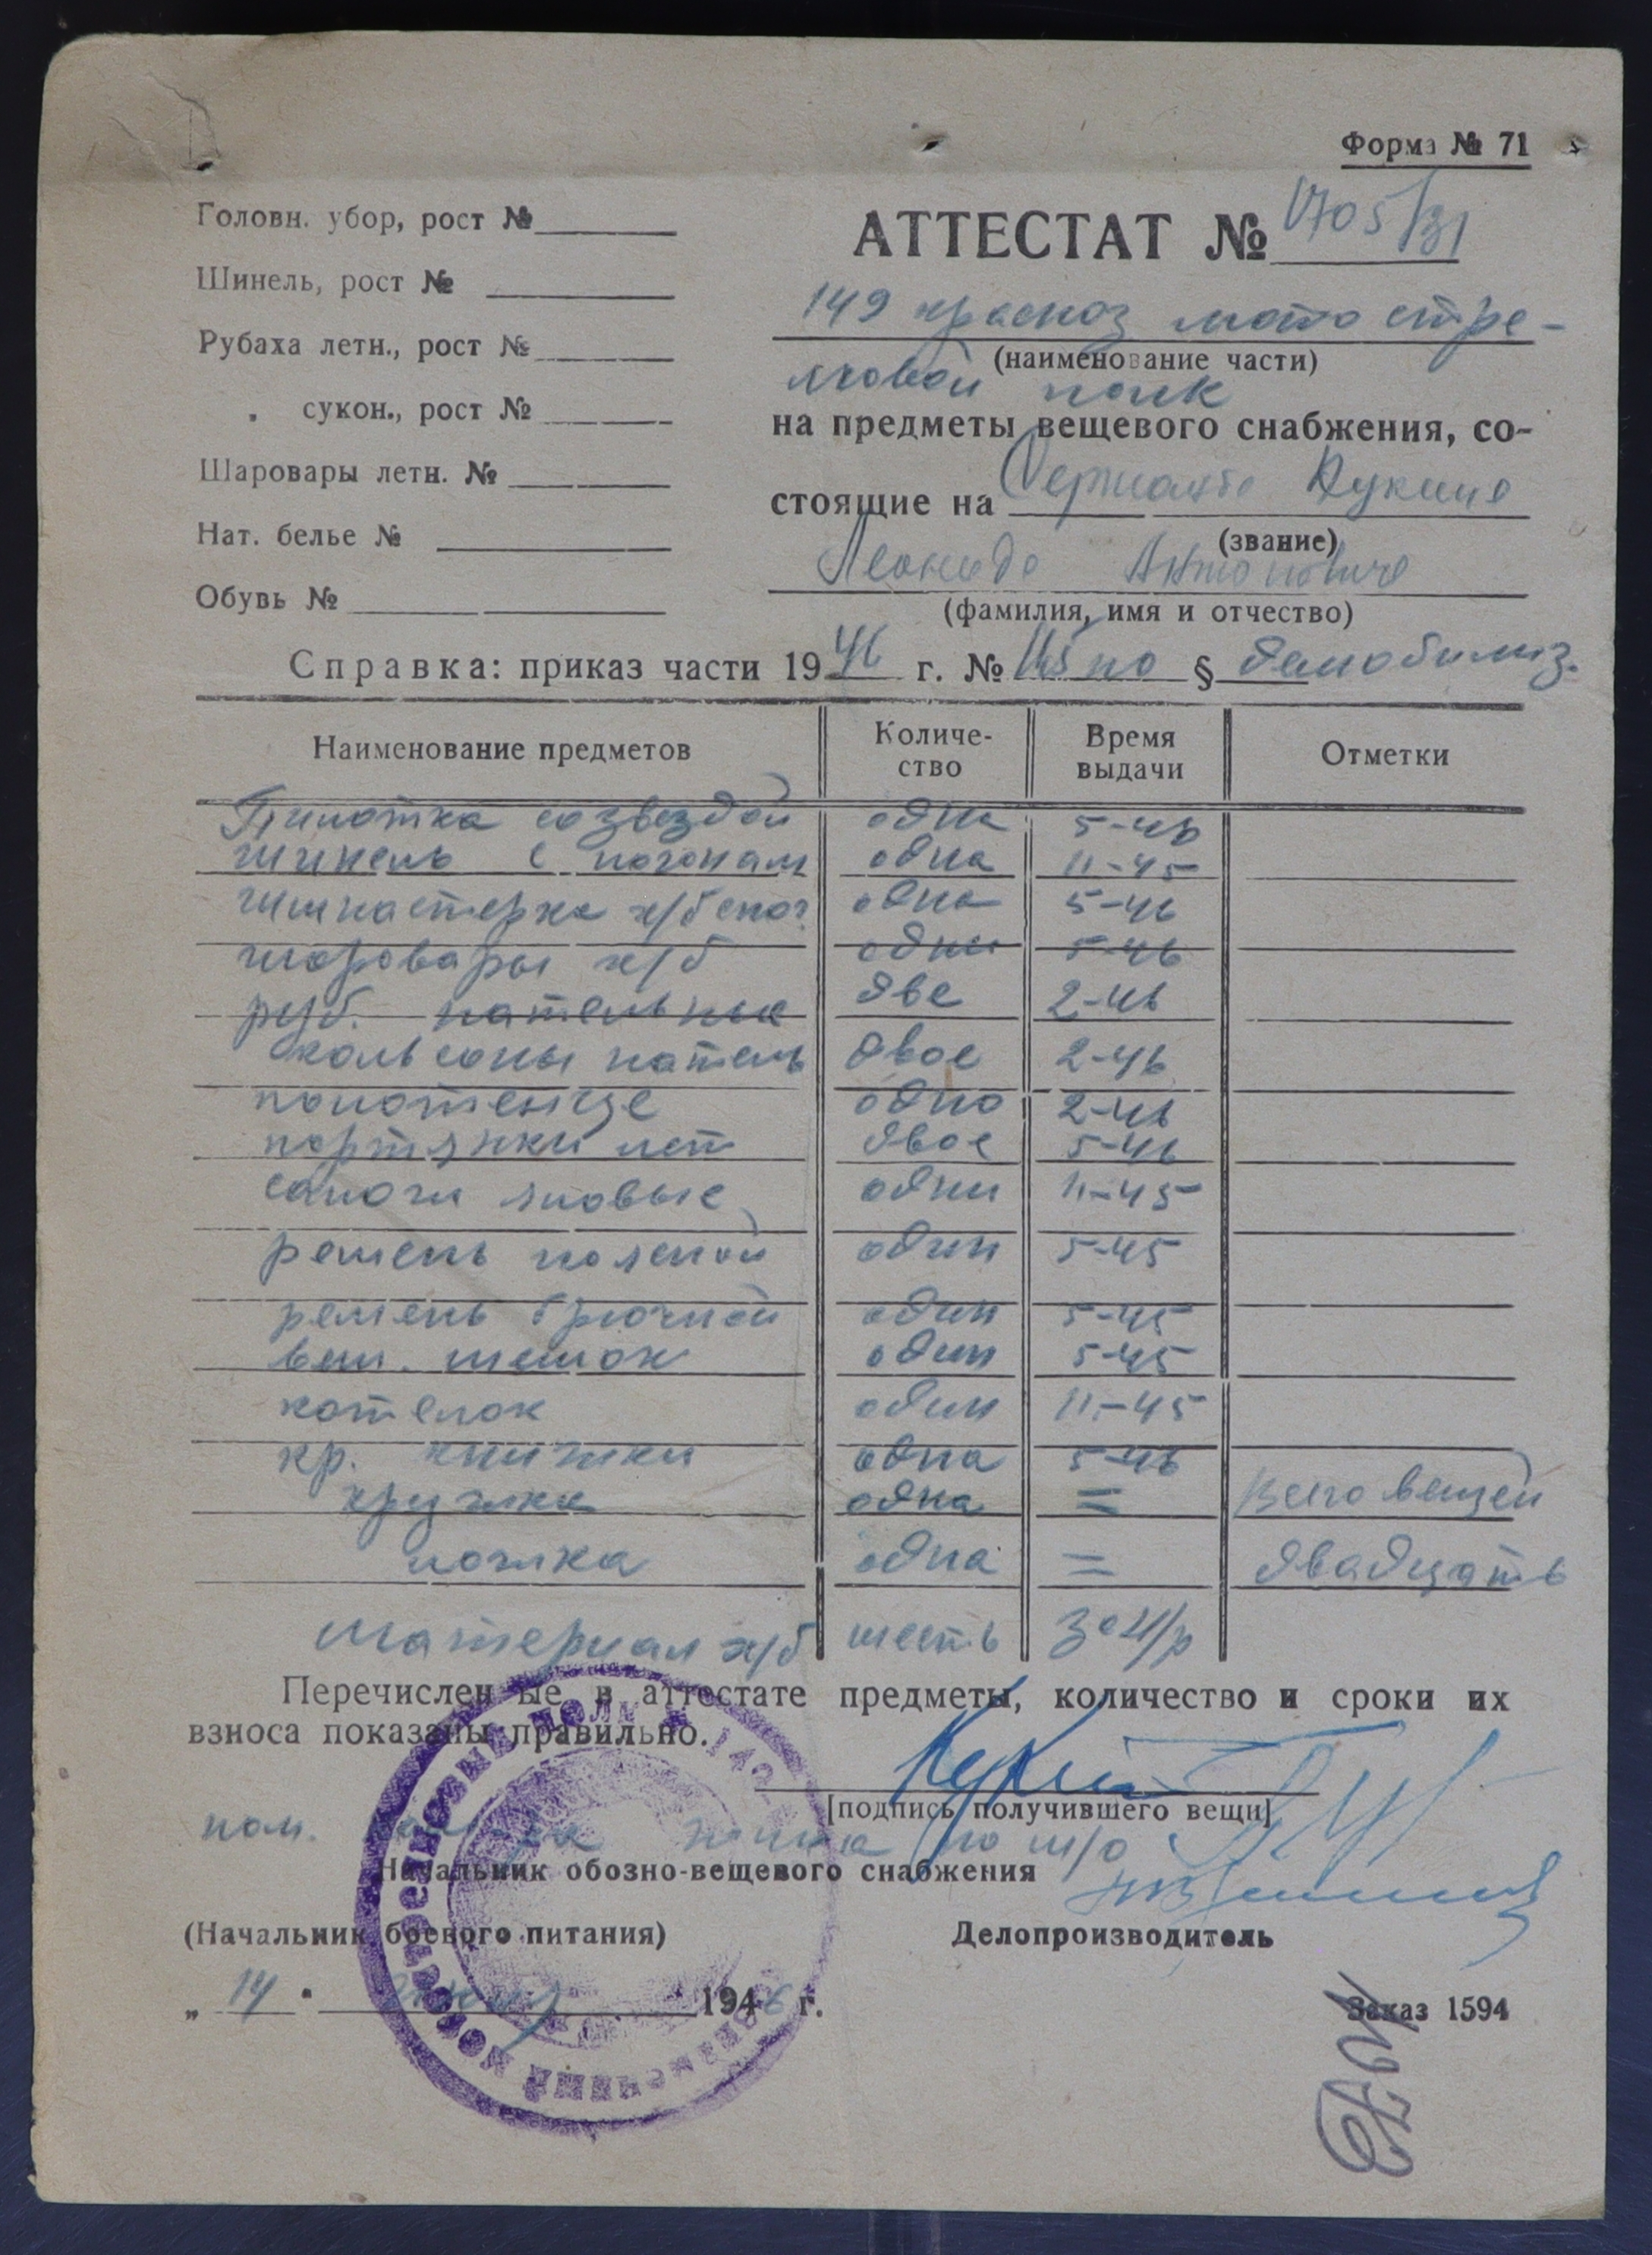 Форма № 71
Головн. убор, рост №
Шинель, рост №
Рубаха летн., рост №
„ сукон., рост №
Шаровары летн. №
Нат. белье №
Обувь №
АТТЕСТАТ № 1705/31
149 красноз мото стре-
(наименование части)
лковой полк
на предметы вещевого снабжения, со-
стоящие на Сержанте
(звание)
Леониде Антоновиче
(фамилия, имя и отчество)
Справка: приказ части 1946 г. № по § демобилиз.
Наименование предметов Количе- Время Отметки
ство выдачи
Пилотка со звездой одна 5-46
шинель с погонам одна 11-45
гимнастерка х/б спог одна 5-46
шаровары х/б одни 5-46
руб. нательные две 2-46
кальсоны натель двое 2-46
полотенце одно 2-46
портянки лет двое 5-46
сапоги яловые одни 11-45
ремень поясной один 5-45
ремень брючной один 5-45
вещ. мешок один 5-45
котелок один 11-45
кр. книжка одна 5-46
кружка одна = Всего вещей
ложка одна = двадцать
материал х/б шесть
Перечисленные в аттестате предметы, количество и сроки их
взноса показаны правильно.
[подпись получившего вещи]
пом. полка по
Начальник обозно-вещевого снабжения
(Начальник боевого питания) Делопроизводитель
„ 14 " 1946 г.
Заказ 1594